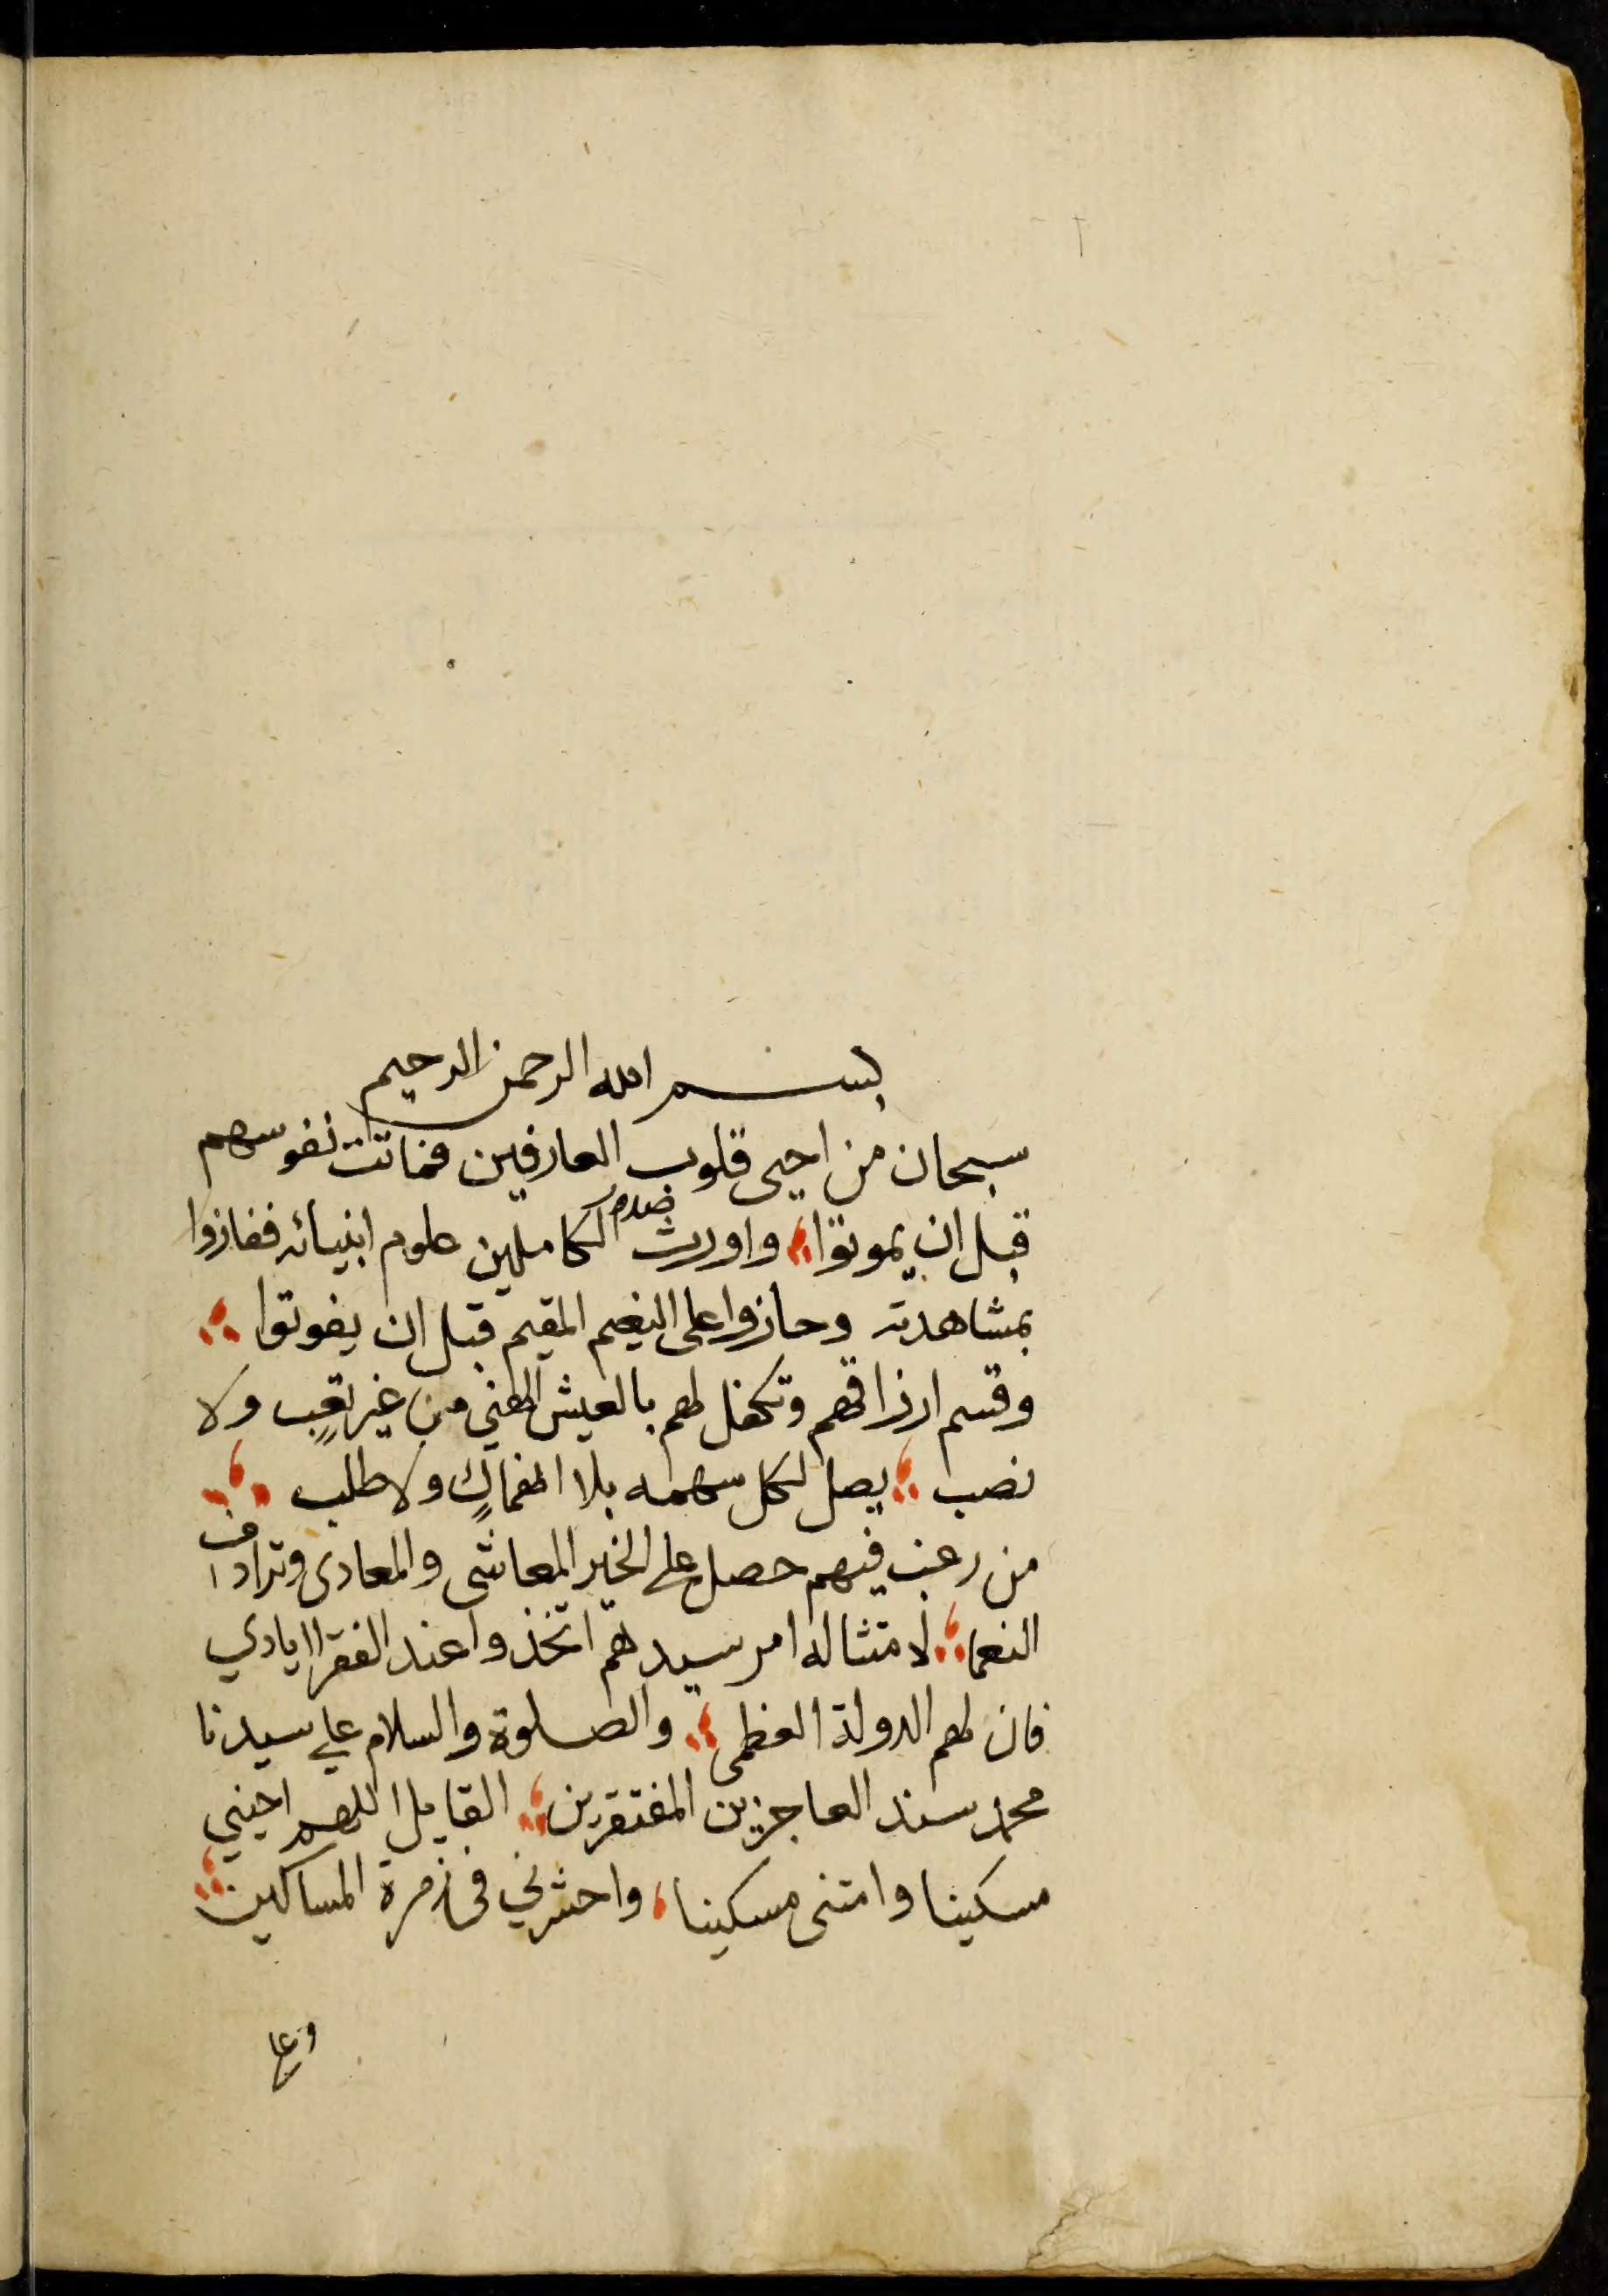 بسم الله الرحمن الرحيم
سبحان من احيى قلوب العارفين فماتت نفوسهم
قبل ان يموتوا واورث الكاملين علوم انبيائه ففازوا
بمشاهدته وحازوا على النعيم المقيم قبل ان يفوتوا
وقسم ارزاقهم وتكفل لهم بالعيش الهني من غير تعب ولا
نصب يصل لكل سهمه بلا انهماك ولا طلب
من رغب فيهم حصل على الخير المعاشى والمعادى وترادف
النعما لامتثاله امر سيدهم اتخذوا عند الفقرا الايادي
فان لهم الدولة العظمى والصلوة والسلام على سيدنا
محمد سند العاجزين المفتقرين القايل اللهم احيني
مسكينا وامتنى مسكينا واحشرني فى زمرة المساكين
وعلى